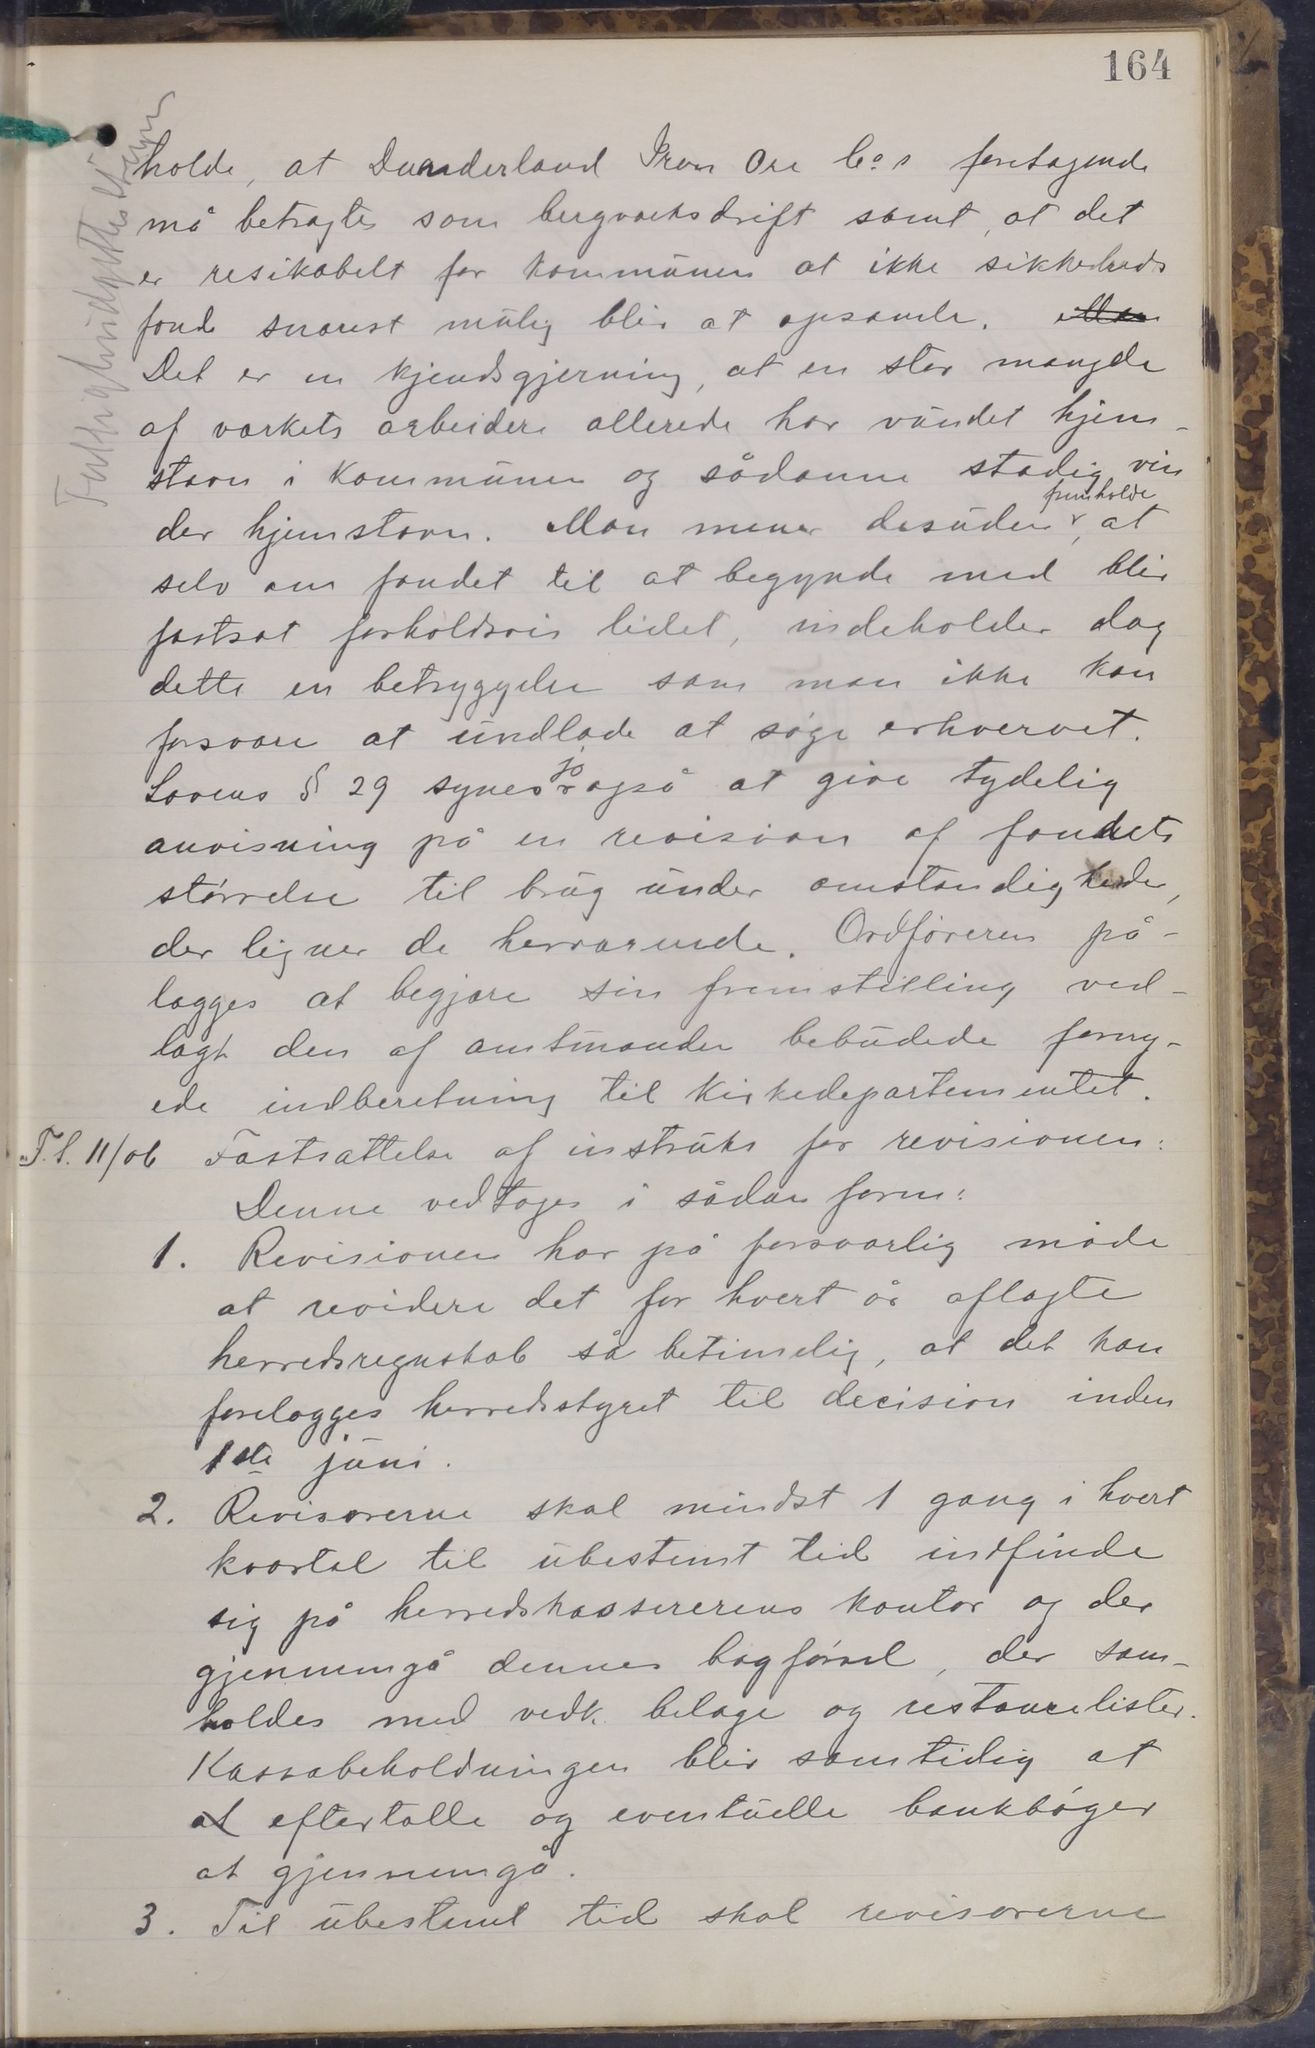 164
holde, at Dunderland Iron Ore Co.s foretagende
må betragtes som bergværksdrift samt, at det
er resikabelt for kommunen at ikke sikkerheds
fond snarest mulig blir at opsamle. Man
Det er en kjendsgjerning, at en stor mængde
af værkets arbeidere allerede har vundet hjem-
stavn i kommunen og sådanne stadig vin
der hjemstavn. Man mener desuden fremholde, at
selv om fondet til at begynde med blir
fastsat forholdsvis lidet, indeholder dog
dette en betryggelse som man ikke kan
forsvare at undlade at søge erhvervet.
Lovens § 29 synes jo også at give tydelig
anvisning på en revision af fondets
størrelse til brug under omstændigheder,
der ligner de herværende. Ordføreren på-
lægges at begjære sin fremstilling ved-
lagt den af amtmanden bebudede forny-
ede indberetning til Kirkedepartementet.
F.S. 11/06 Fastsættelse af instruks for revisionen:
Denne vedtages i sådan form:
1. Revisionen har på forsvarlig måde
at revidere det for hvert år aflagte
herredsregnskab så betimelig, at det kan
forelægges herredsstyret til decision inden
1ste juni.
2. Revisorerne skal mindst 1 gang i hvert
kvartal til ubestemt tid indfinde
sig på herredskassererens kontor og der
gjennemgå dennes bogførsel, der sam-
holdes med vedk. belage og restancelister.
Kassabeholdningen blir samtidig at
at eftertælle og eventuelle bankbøger
at gjennemgå.
3. Til ubestemt tid skal revisorerne